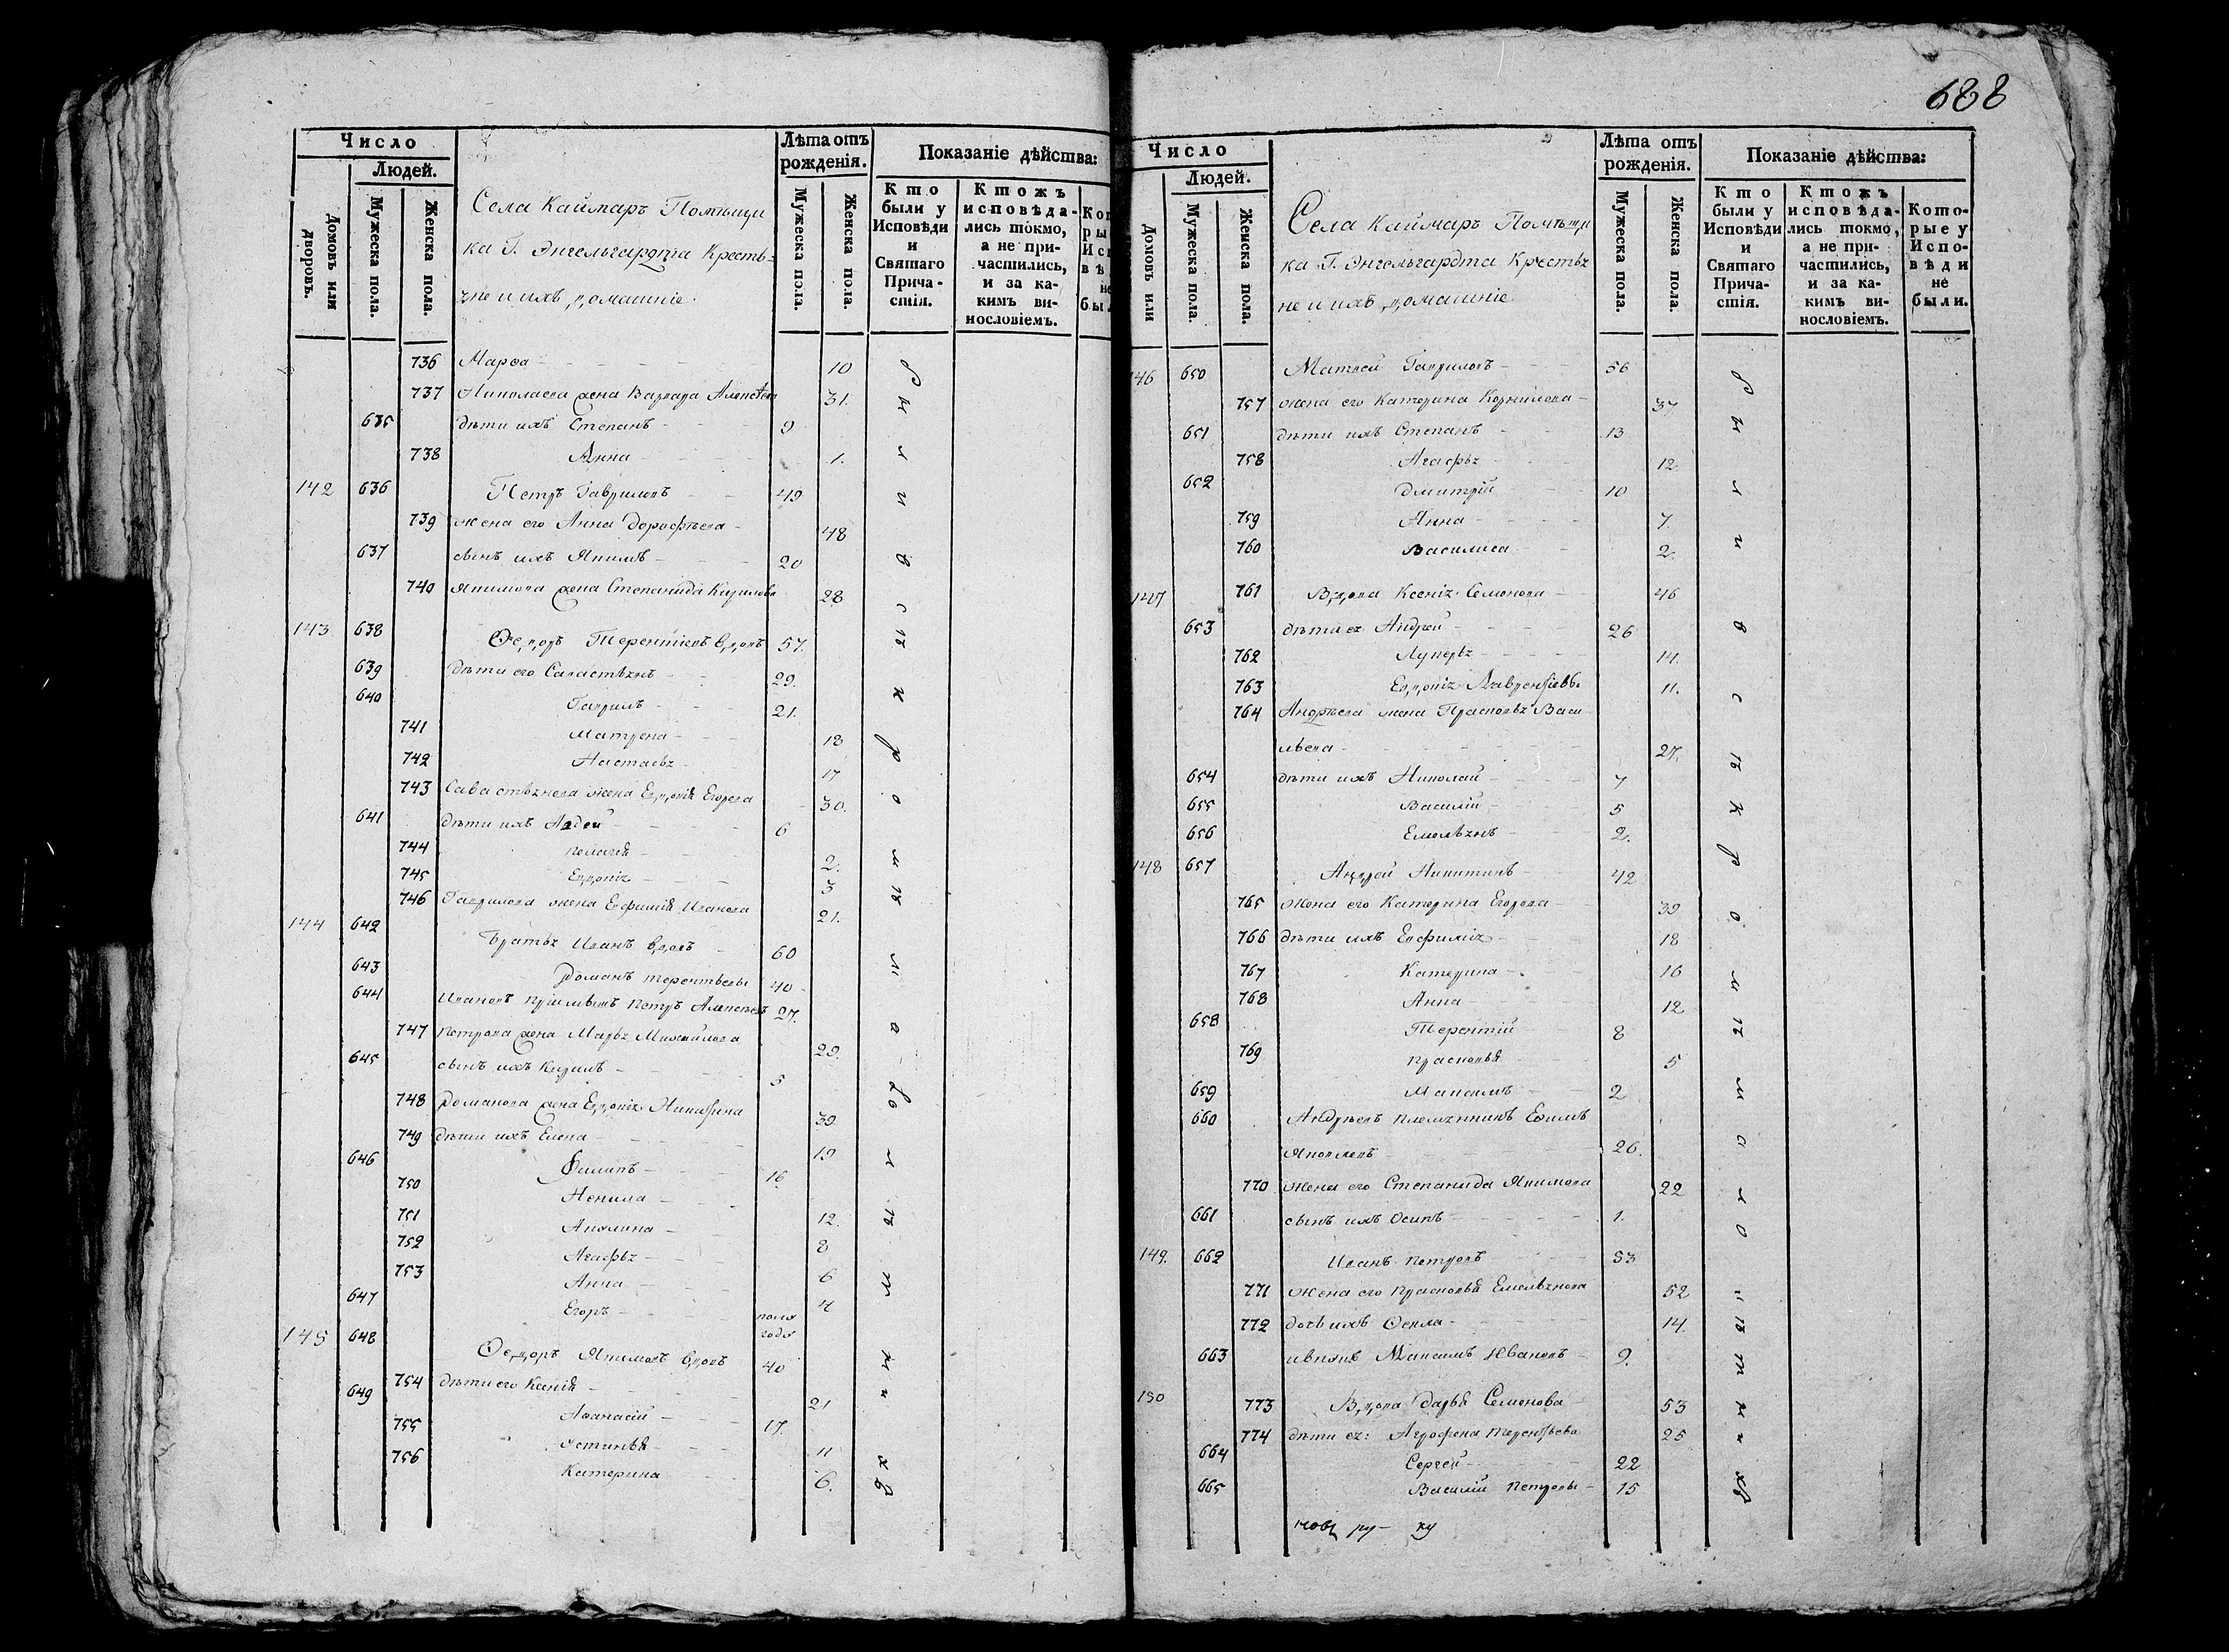 688
Число
Людей.
Домовъ или дворовъ.
Мужеска пола.
Женска пола.
Села Каймаръ Помѣщи
ка Г. Энгельгардта Кресть-
яне и ихъ домашніе
Лѣта отъ рожденія.
Мужеска пола.
Женска пола.
Показаніе дѣйства:
Кто были у Исповѣди и Святаго Прича-стія.
Ктожъ исповѣда-лись токмо, а не при-частились, и за ка-кимъ ви-нословіемъ.
736 Марѳа 10
737 Николаева жена Варвара Алексѣева 31.
635 дѣти ихъ Степанъ 9
738 Анна 1.
142 636 Петръ Гавриловъ 49
739 жена его Анна Дорофѣева 48
637 сынъ ихъ Якимъ 20
740 Якимова жена Степанида Кирилова 28
143 638 Ѳедоръ Терентіевъ вдовъ 57.
639 дѣти его Савастьянъ 29.
640 Гаврилъ 21.
741 Матрена 18
742 Настасья 17
743 Савастьянова жена Евдокія Егорова 30.
641 дѣти ихъ Авдей 6
744 Пелагея 2.
745 Евдокія 3
746 Гаврилова жена Евфимія Иванова 21.
144 642 Братья Иванъ вдовъ 60
643 Романъ Терентьевы 40
644 Ивановъ пріимышъ Петръ Алексѣевъ 27.
747 Петрова жена Марья Михайлова 29.
645 сынъ ихъ Кирилъ 5
748 Романова жена Евдокія Никитина 39.
749 дѣти ихъ Елена 19
646 Филипъ 16
750 Ненила 12.
751 Акулина 8
752 Агафья 6
753 Анна 4
647 Егоръ полу года
145 648 Ѳедоръ Якимовъ вдовъ 40
754 дѣти его Ксенія 21
649 Аѳанасій 17.
755 Устинья 11
756 Катерина 6.
были в с ъ к р о м ѣ м а л ѣ т н и хъ
Число
Людей.
Домовъ или
Мужеска пола.
Женска пола.
Села Каймаръ Помѣщи
ка Г. Энгельгардта Крестья
не и ихъ домашніе
Лѣта отъ рожденія.
Мужеска пола.
Женска пола.
Показаніе дѣйства:
Кто были у Исповѣди и Святаго Прича-стія.
Ктожъ исповѣда-лись токмо, а не при-частились, и за ка-кимъ ви-нословіемъ.
Кото-рые у Испо-вѣди не были.
146 650 Матвей Гавриловъ 56
757 жена его Катерина Корнилова 37
651 дѣти ихъ Степанъ 13
758 Агафья 12.
652 Дмитрій 10
759 Анна 7.
760 Василиса 2.
147 761 Вдова Ксенія Семонова 46
653 дѣти ея Андрей 26
762 Лукерья 14.
763 Евдокія Лаврентіевы 11.
764 Андрѣева жена Прасковья Васи
льева 27.
654 дѣти ихъ Николай 7
655 Василій 5
656 Емельянъ 2.
148 657 Андрей Никитинъ 42
765 жена его Катерина Егорова 39
766 дѣти ихъ Евфимія 18
767 Катерина 16
768 Анна 12
658 Терентій 8
769 Прасковья 5
659 Максимъ 2
660 Андрѣевъ племянникъ Ефимъ
Яковлевъ 26.
770 жена его Степанида Якимова 22
661 сынъ ихъ Осипъ 1.
149. 662 Иванъ Петровъ 53
771 жена его Прасковья Емельянова 52
772 дочь ихъ Ѳекла 14.
663 Максимъ Ивановъ 9.
150 773 Вдова Дарья Семенова 53
774 дѣти ея: Агрофена Терентьева 25
664 Сергей 22
665 Василій Петровы 15
были в с ъ к р о м ѣ м а л о л ѣ т н и хъ